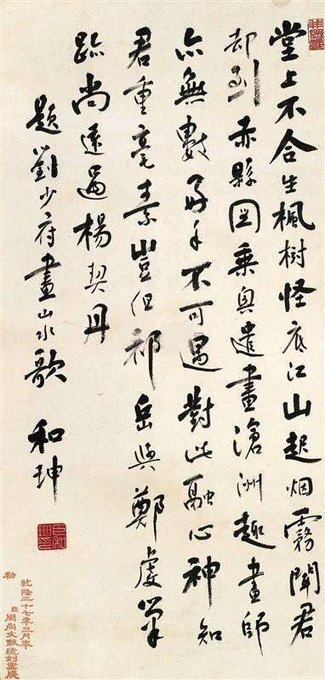 堂上不合生楓樹怪底江山起烟霧聞君
却到赤縣図乘興遣畫滄洲趣畫師
亦無數好手不可遇對此融心神知
君重毫素豈但祁岳與鄭虔筆
跡尚遠過楊契丹
題劉少府畫山水歌 和珅
乾隆三十七年三月奉
勅
臣周尚文